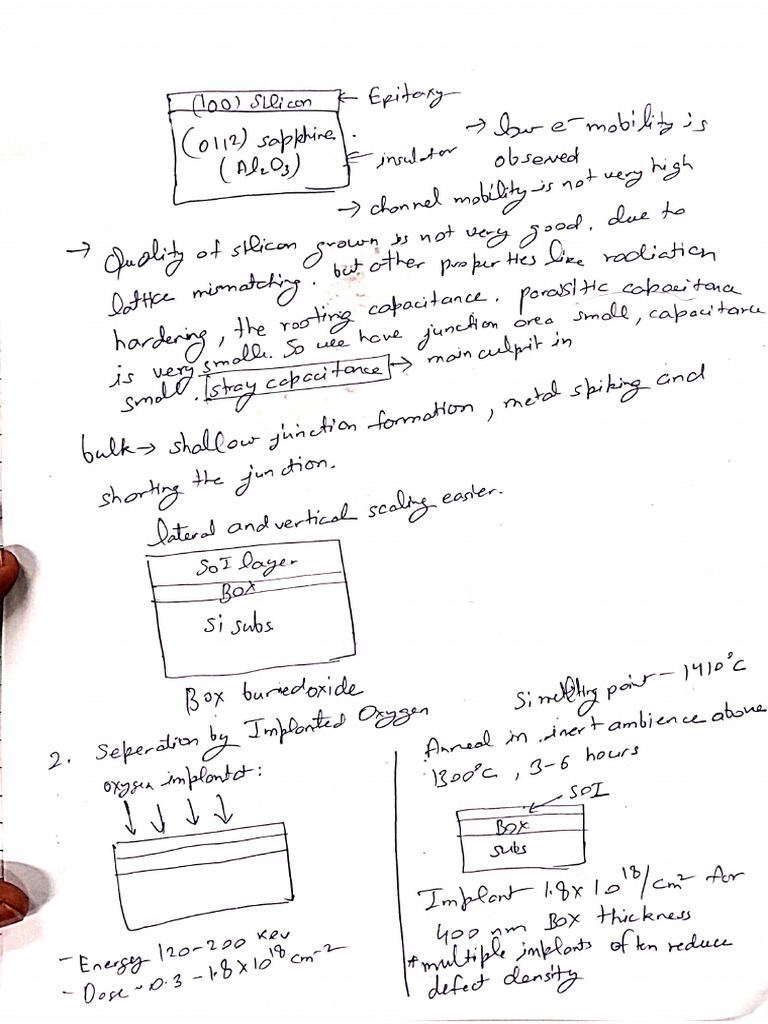 (100) Silicon ← Epitaxy
(0112) sapphire.
(Al₂O₃)
← insulator
→ low e⁻ mobility is
observed
→ channel mobility is not very high
→ Quality of silicon grown is not very good. due to
lattice mismatching. but other properties like radiation
hardening, the rooting capacitance. parasitic capacitance
is very small. So we have junction area small, capacitance
small. stay capacitance → main culpit in
bulk → shallow junction formation, metal spiking and
shorting the junction.
lateral and vertical scaling easier.
SOI layer
BOX
Si subs
Box buriedoxide
2. Seperation by Implanted Oxygen
oxygen implantat:
- Energy 120-200 KeV
- Dose ~ 0.3 - 1.8 x 10¹⁸ cm⁻²
Si melting point - 1410°C
Anneal in inert ambience above
1300°C, 3-6 hours
SOI
BOX
subs
Implant 1.8 x 10¹⁸/cm² for
400 nm BOX thickness
* multiple implants often reduce
defect density